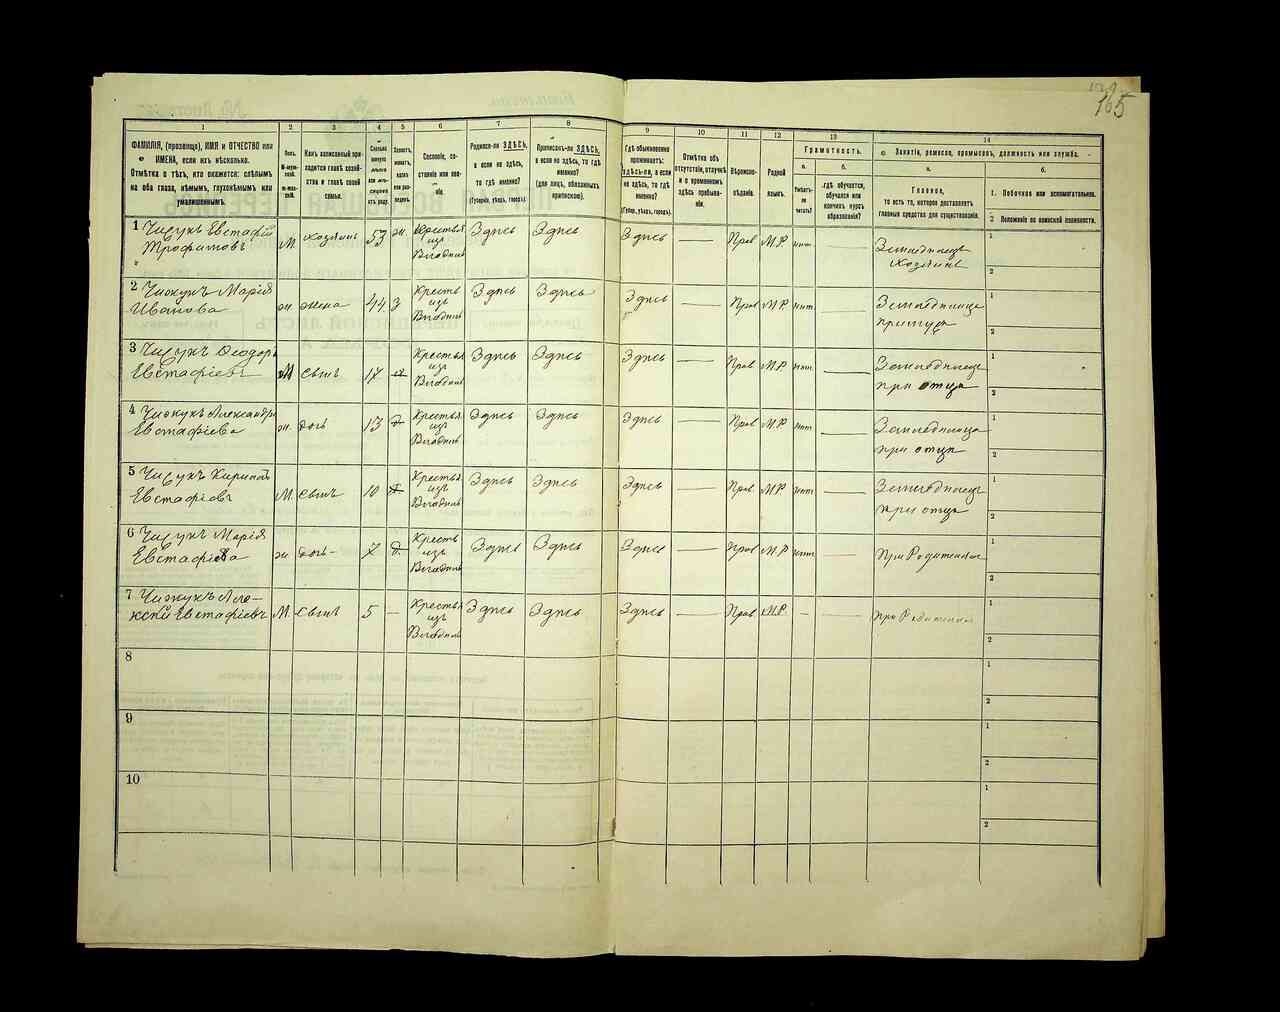 165
1
2
3
4
5
6
7
8
9
10
11
12
13
14
ФАМИЛІЯ, (прозвище), ИМЯ и ОТЧЕСТВО или
ИМЕНА, если ихъ нѣсколько.
Отмѣтка о тѣхъ, кто окажется: слѣпымъ
на оба глаза, нѣмымъ, глухонѣмымъ или
умалишеннымъ.
Полъ.
М-мужской.
Ж-женскій.
Какъ записанный при-
ходится главѣ хозяй-
ства и главѣ своей
семьи.
Сколько
минуло
лѣтъ или мѣ-
сяцевъ
отъ роду.
Холостъ,
женатъ,
вдовъ
или раз-
веденъ.
Сословіе, со-
стояніе или зва-
ніе.
Родился-ли ЗДѢСЬ,
а если не здѣсь,
то гдѣ именно?
(Губернія, уѣздъ, городъ).
Приписанъ-ли ЗДѢСЬ,
а если не здѣсь, то гдѣ
именно?
(для лицъ, обязанныхъ
припискою).
Гдѣ обыкновенно
проживаетъ:
ЗДѢСЬ-ли, а если
не здѣсь, то гдѣ
именно?
(Губер., уѣздъ, городъ).
Отмѣтка объ
отсутствіи, отлучкѣ
и о временномъ
здѣсь пребыва-
ніи.
Вѣроиспо-
вѣданіе.
Родной
языкъ.
Грамотность.
а.
Умѣетъ-
ли
читать?
б.
гдѣ обучается,
обучался или
кончилъ курсъ
образованія?
Занятіе, ремесло, промыселъ, должность или служба.
а.
Главное,
то есть то, которое доставляетъ
главныя средства для существованія.
б.
1. Побочное или вспомогательное.
2. Положеніе по воинской повинности.
1 Чижукъ Евстафій
Трофимовъ
М. хозяинъ 53 ж. Крестья
изъ
Владѣл
Здѣсь Здѣсь Здѣсь — Прав М.Р. нѣт —
Земледѣлецъ
Хозяинъ
1
2
2 Чижукъ Марія
Иванова
ж. жена 44 З Крестья
изъ
Владѣл
Здѣсь Здѣсь Здѣсь — Прав М.Р. нѣт —
Земледѣлица
при мужѣ
1
2
3 Чижукъ Ѳеодоръ
Евстафіевъ
М сынъ 17 Крестья
изъ
Владѣл
Здѣсь Здѣсь Здѣсь — Прав М.Р. нѣт —
Земледѣлецъ
при отцѣ
1
2
4 Чижукъ Александра
Евстафіева
ж. дочь 13 Крестья
изъ
Владѣл
Здѣсь Здѣсь Здѣсь — Прав М.Р. нѣт —
Земледѣлица
при отцѣ
1
2
5 Чижукъ Кирилъ
Евстафіевъ
М. сынъ 10 Крестья
изъ
Владѣл
Здѣсь Здѣсь Здѣсь — Прав М.Р. нѣт —
Земледѣлецъ
при отцѣ
1
2
6 Чижукъ Марія
Евстафіева
ж. дочь 7 Крестья
изъ
Владѣл
Здѣсь Здѣсь Здѣсь — Прав М.Р. нѣт —
при Родителяхъ
1
2
7 Чижукъ Але-
ксѣй Евстафіевъ
М. сынъ 5 — Крестья
изъ
Владѣл
Здѣсь Здѣсь Здѣсь — Прав М.Р. — —
при Родителяхъ
1
2
8
1
2
9
1
2
10
1
2